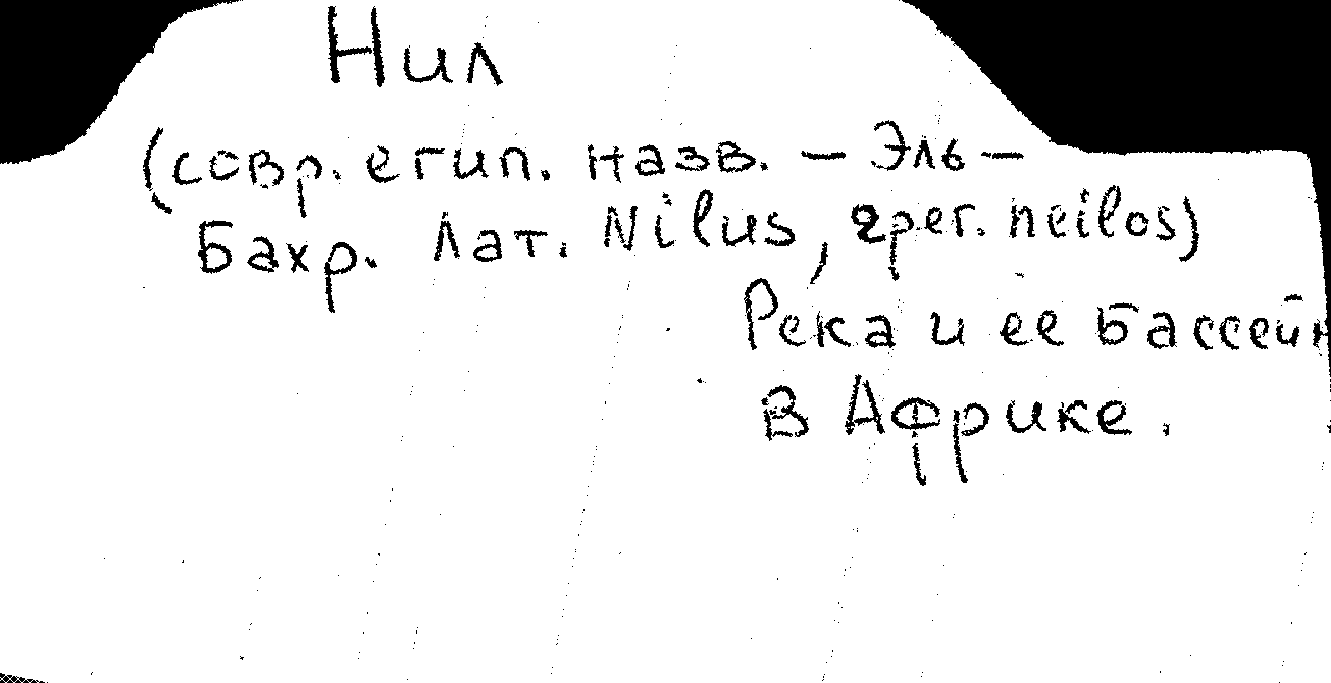 Нил
(совр. египт. назв. – Эль –
Бахр. Лат. Nilus, грег. neilos)
Река и ее бассейн
в Африке.